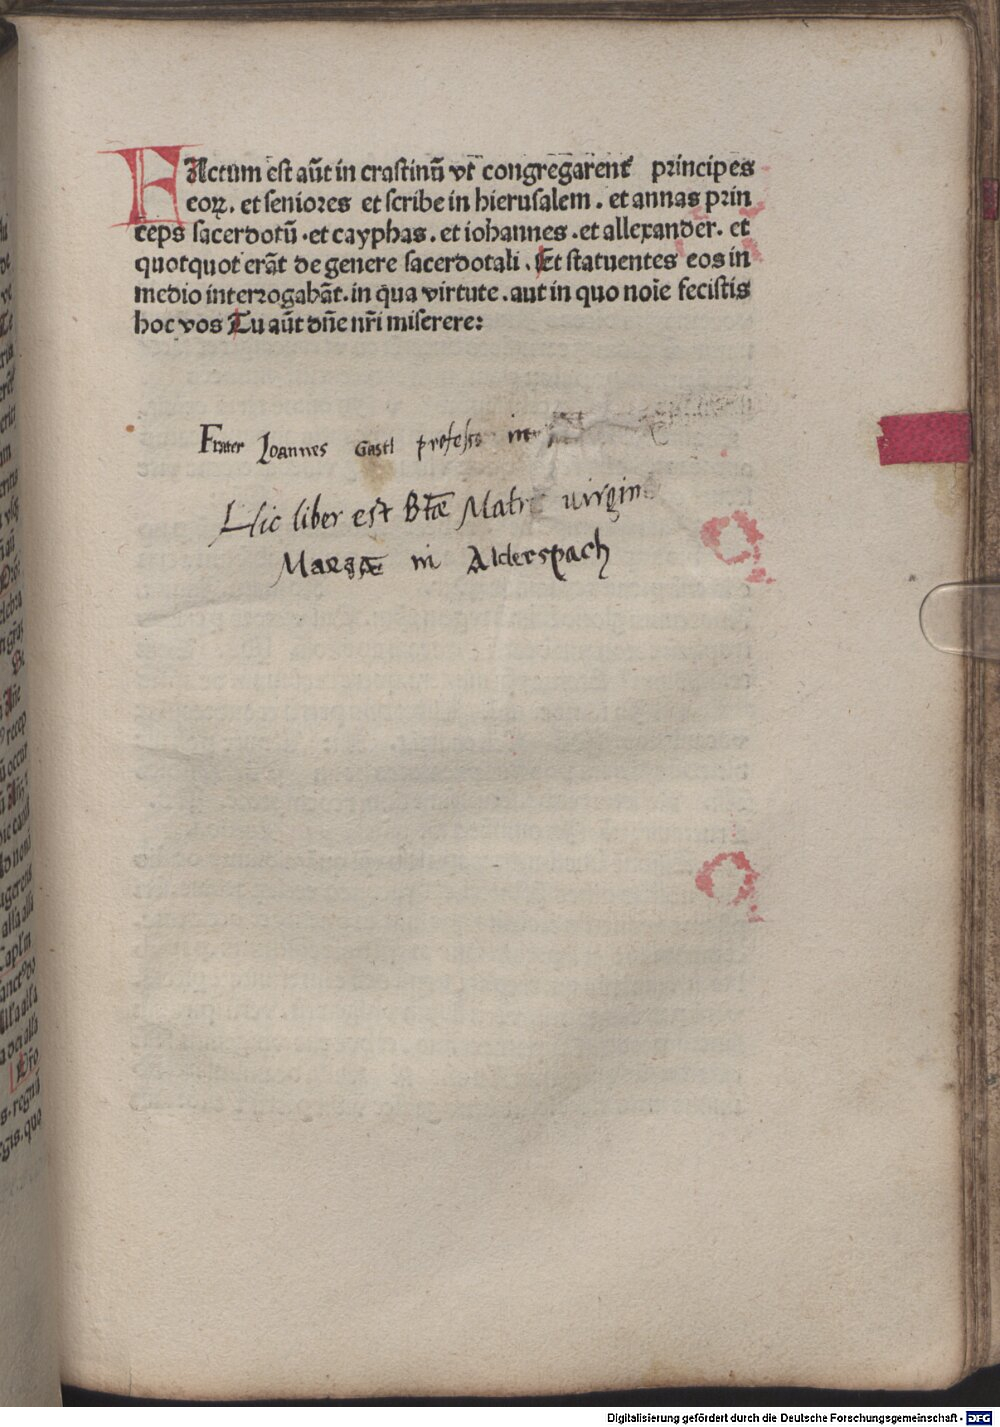 FActum est aūt in crastinū vt congregarent̄ principes
eoꝝ. et seniores et scribe in hierusalem. et annas prin
ceps sacerdotū. et cayphas. et iohannes. et allexander. et
quotquot erāt de genere sacerdotali. Et statuentes eos in
medio interrogabāt. in qua virtute. aut in quo noīe fecistis
hoc vos Tu aūt dn̄e nr̄i miserere:
Frater Joannes Gastl professo in
Hic liber est Btæ Matr virgin
Mariæ in Alderspach
Digitalisierung gefördert durch die Deutsche Forschungsgemeinschaft - DFG